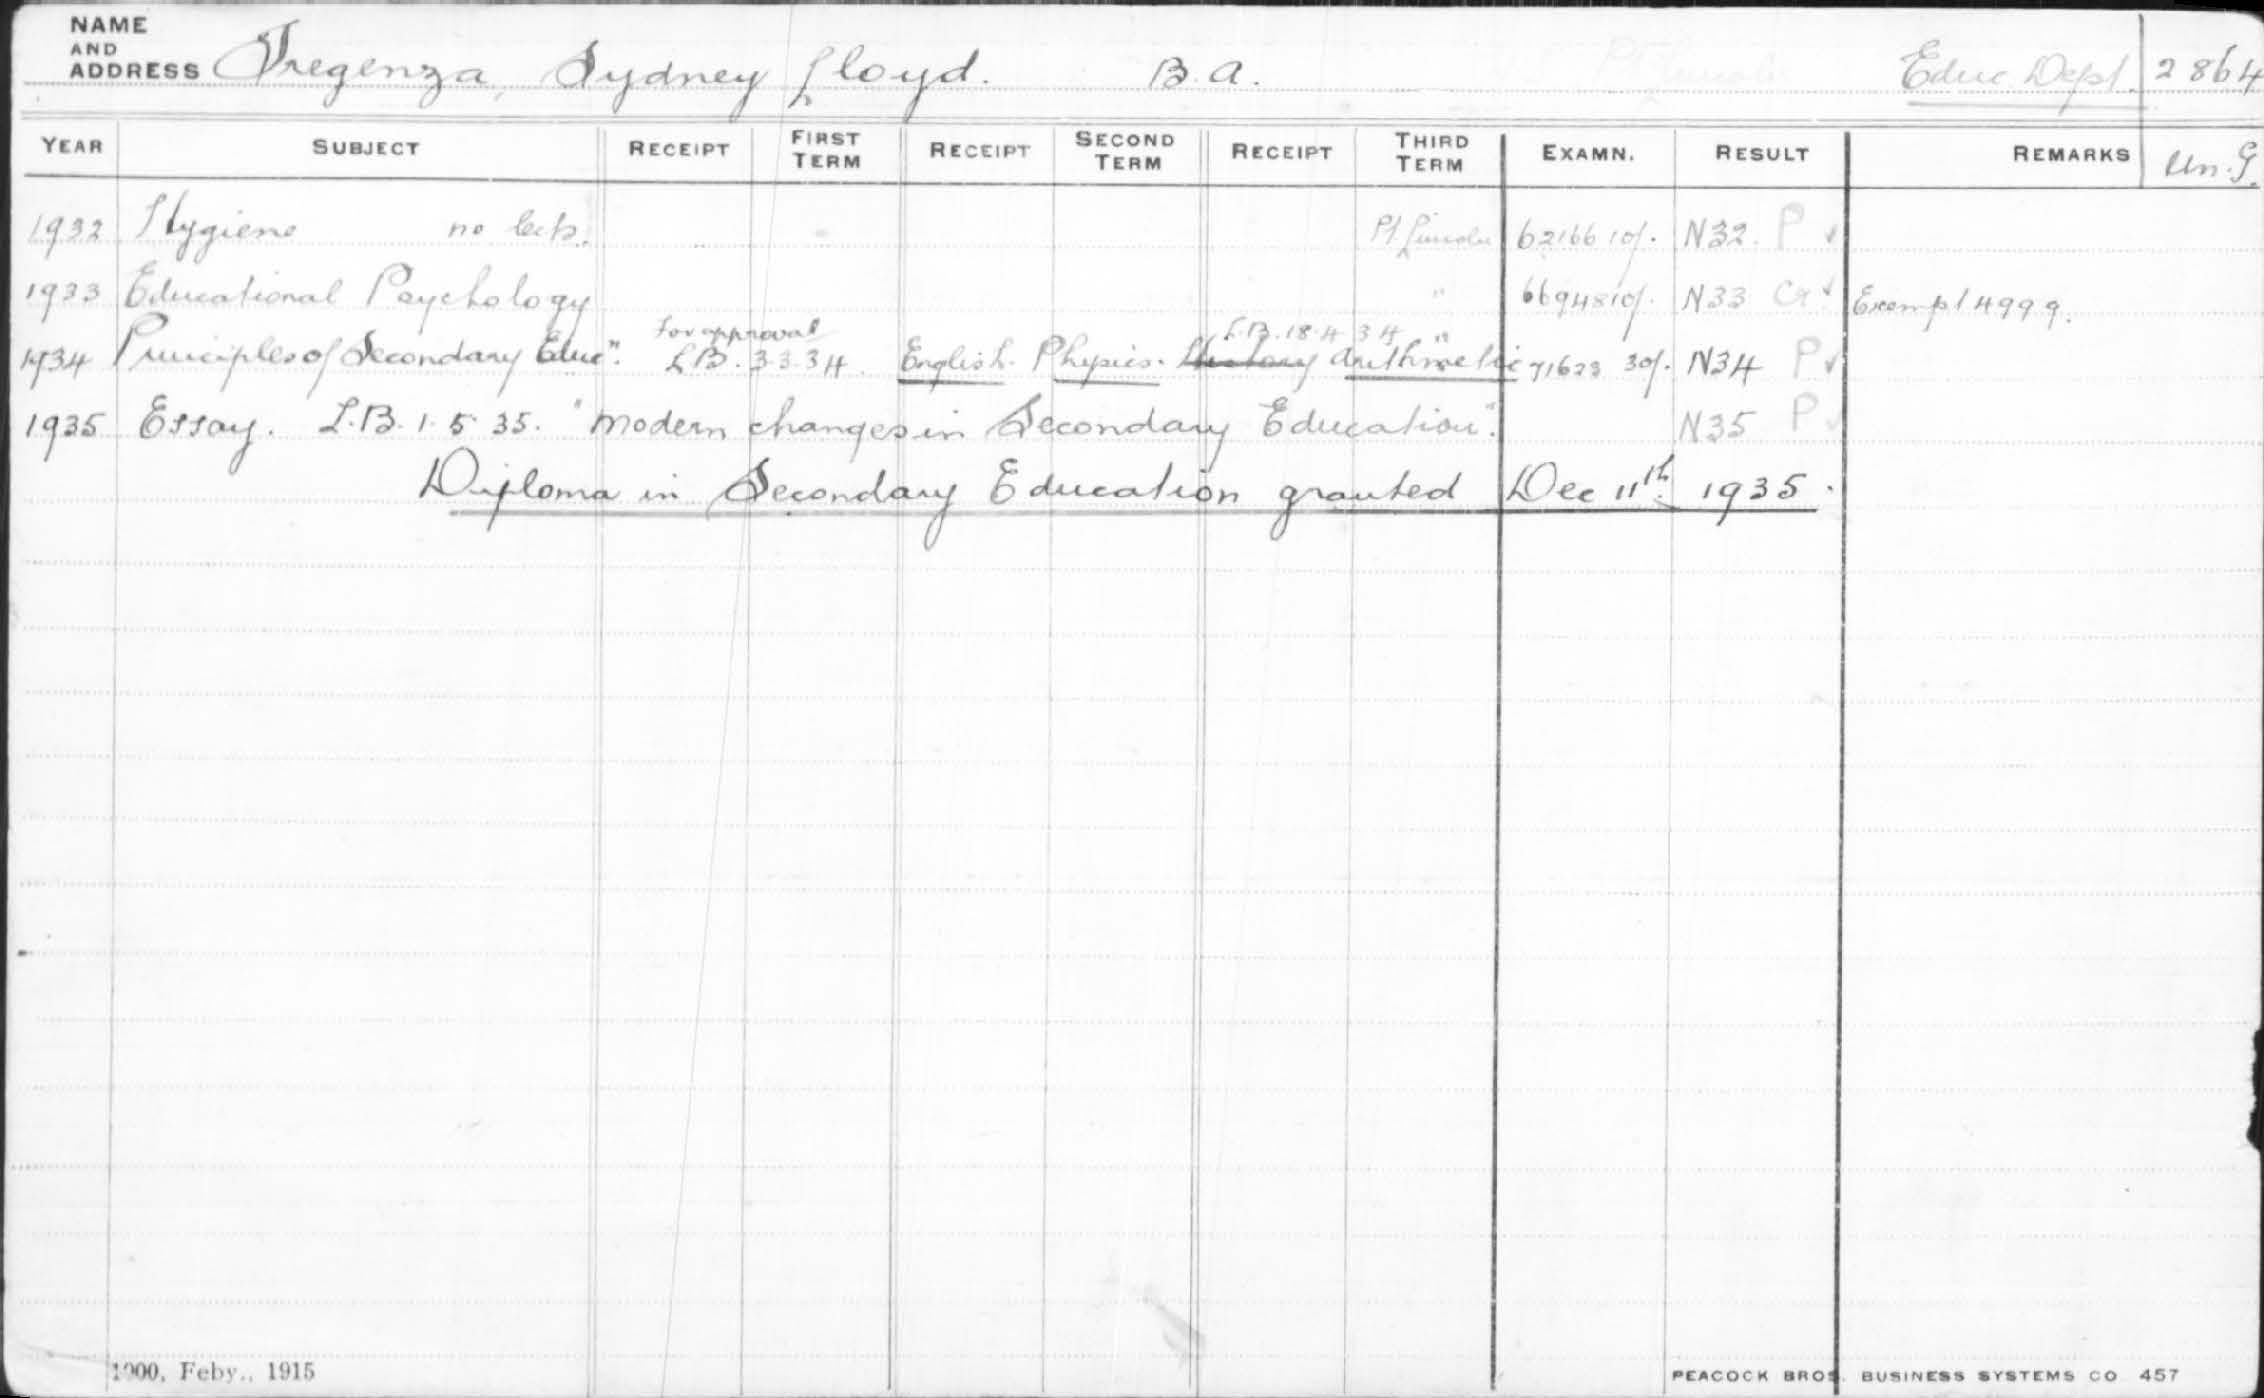 NAME AND ADDRESS Tregenza, Sydney Lloyd. B.A. Educ Dept. 2864
YEAR SUBJECT RECEIPT FIRST TERM RECEIPT SECOND TERM RECEIPT THIRD TERM EXAMN. RESULT REMARKS Un.G.
1932 Hygiene no lects. Pt Lincoln 62166 10/. N32. P ✓
1933 Educational Psychology " 66948 10/. N33 Cr ✓ Exempt 4999.
for approval L.B. 18.4 34 "
1934 Principles of Secondary Educn. L.B. 3.3.34. English. Physics. History Arithmetic 71623 30/. N34 P ✓
1935 Essay. L.B. 1.5.35. "Modern changes in Secondary Education". N35 P ✓
Diploma in Secondary Education granted Dec 11th 1935.
1000, Feby., 1915 PEACOCK BROS. BUSINESS SYSTEMS CO 457